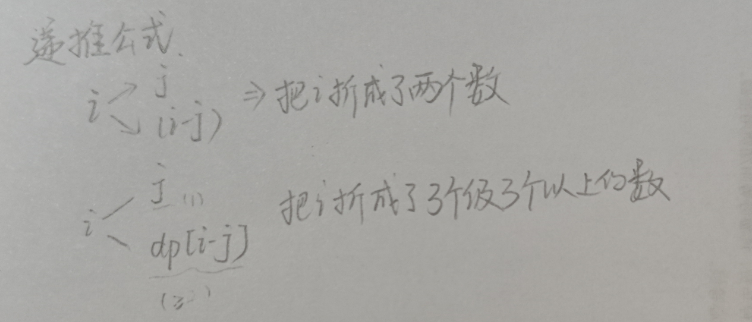 递推公式.
i j (i-j) ⇒ 把i折成了两个数
i j (1) dp[i-j] 把i折成了3个级3个以上的数